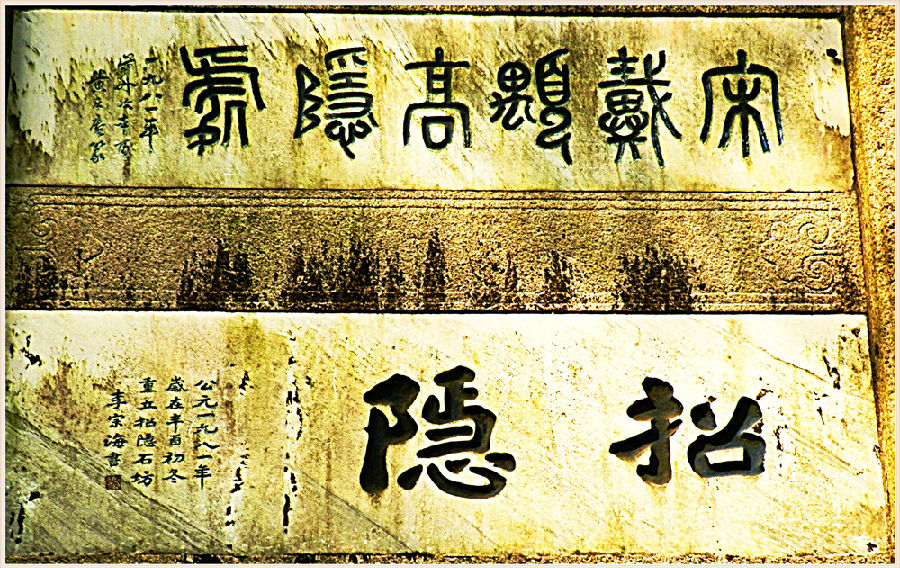 宋戴顒高隱處
一九八一年
招隱
公元一九八一年
歲在辛酉初冬
重立招隱石坊
李宗海書